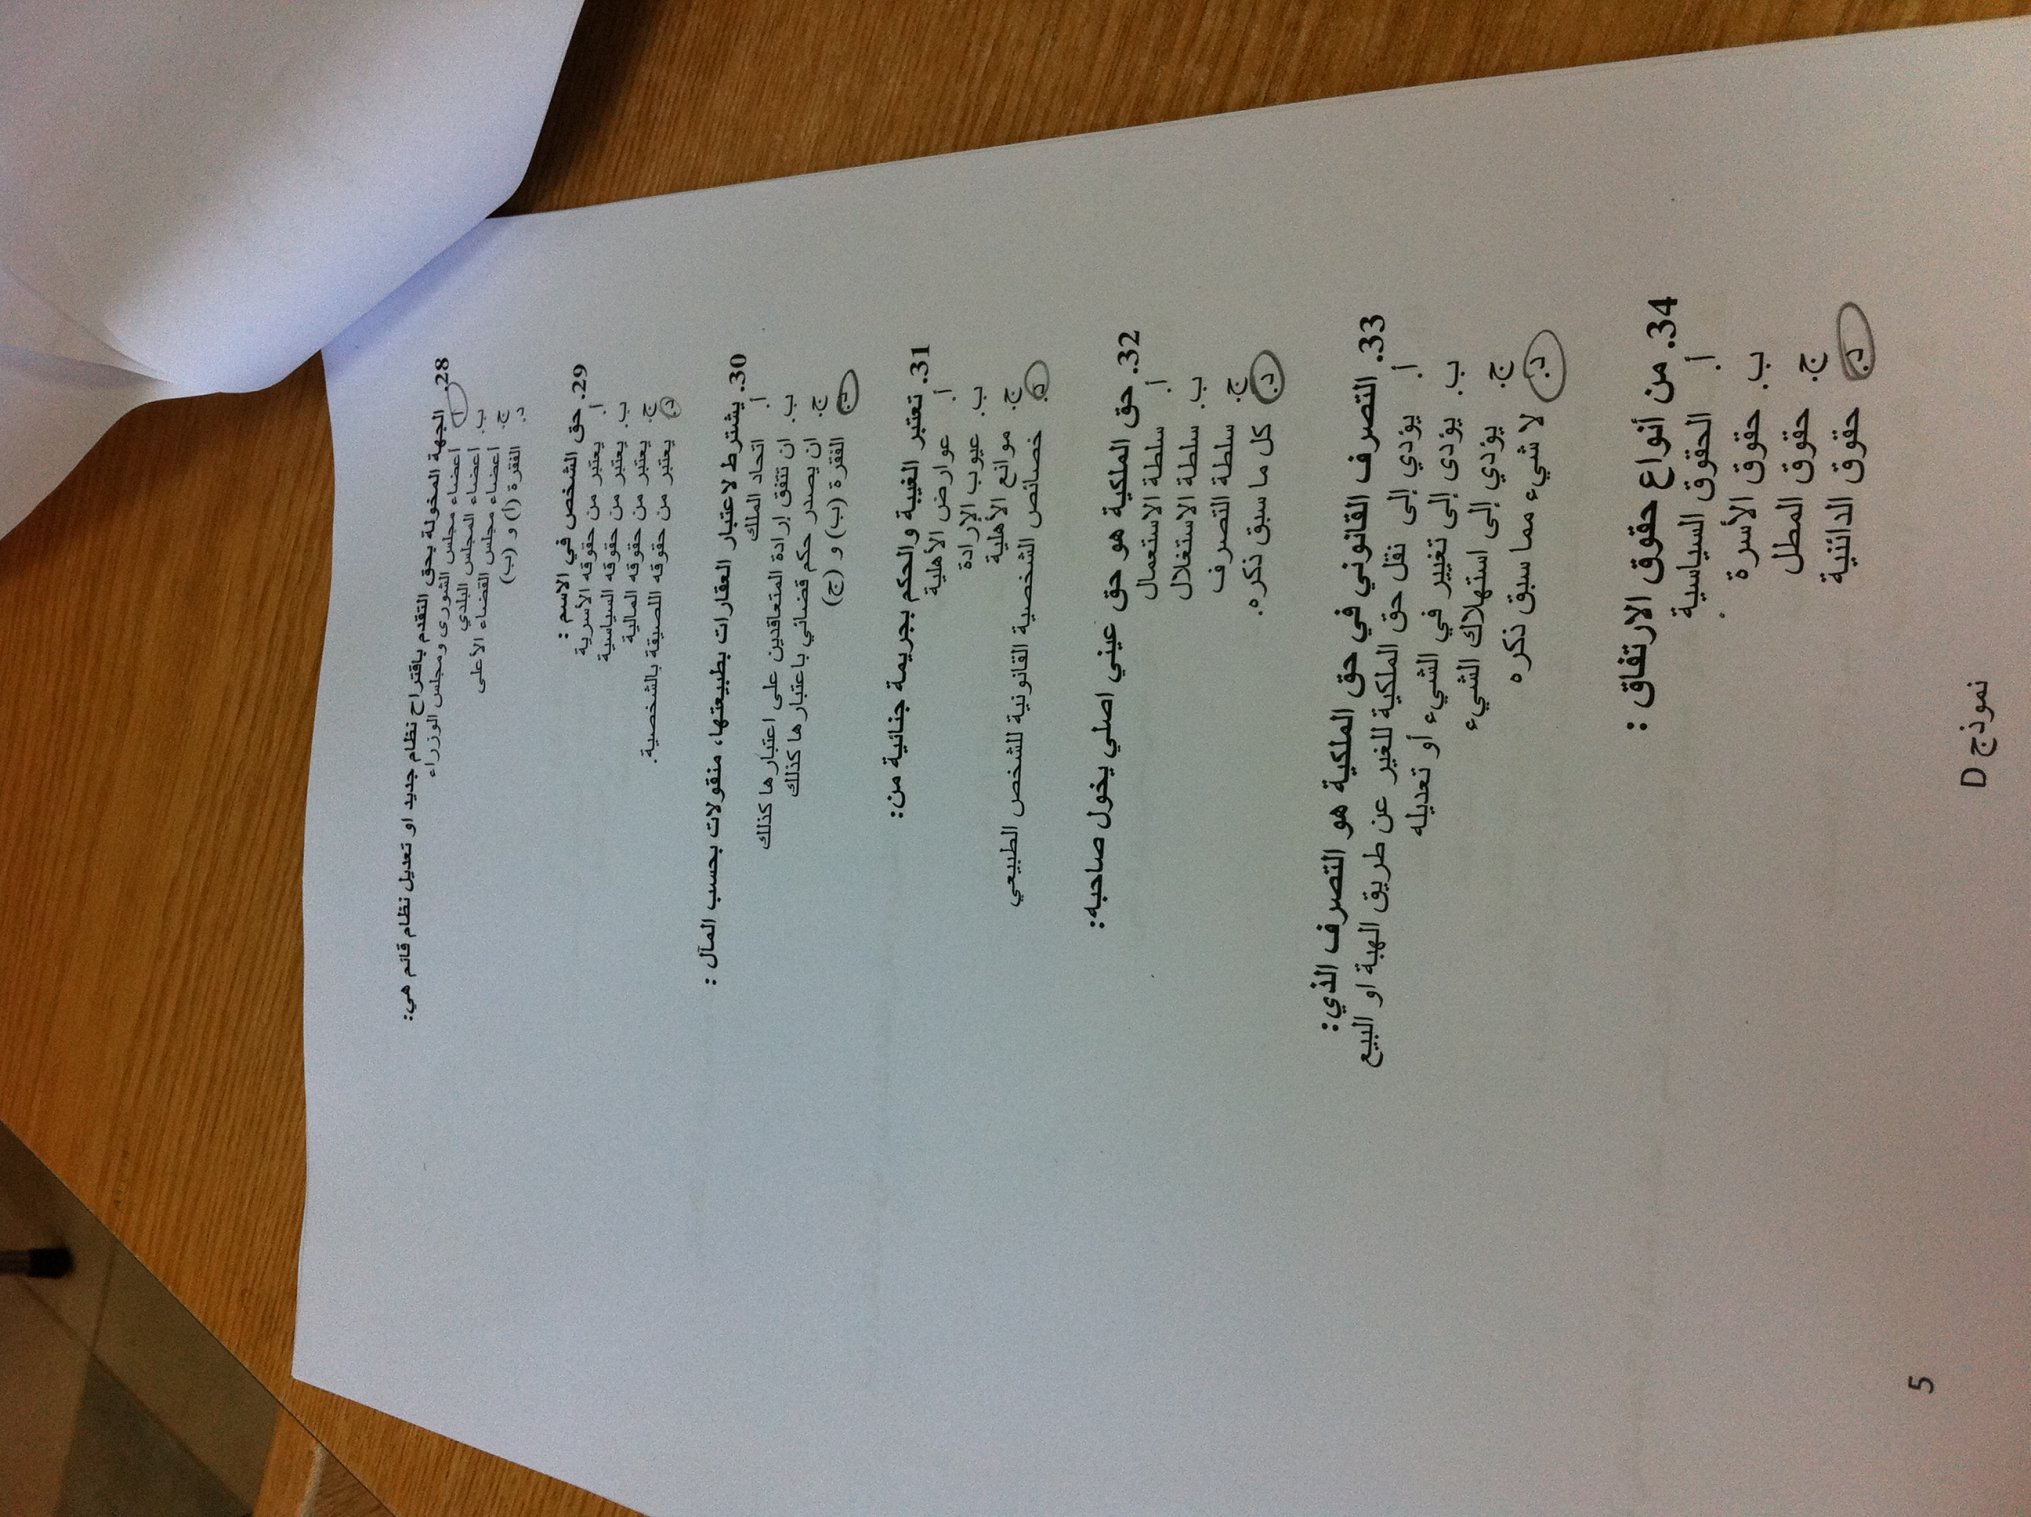 28. الجهة المخولة بحق التقدم باقتراح نظام جديد او تعديل نظام قائم هي:
أ. أعضاء مجلس الشورى ومجلس الوزراء
ب. أعضاء المجلس البلدي
ج. أعضاء مجلس القضاء الأعلى
د. الفقرة (أ) و (ب)
29. حق الشخص في الاسم :
أ. يعتبر من حقوقه الأسرية
ب. يعتبر من حقوقه السياسية
ج. يعتبر من حقوقه المالية
د. يعتبر من حقوقه اللصيقة بالشخصية.
30. يشترط لاعتبار العقارات بطبيعتها، منقولات بحسب المآل :
أ. اتحاد الملك
ب. ان تتفق إرادة المتعاقدين على اعتبارها كذلك
ج. ان يصدر حكم قضائي باعتبارها كذلك
د. الفقرة (ب) و (ج)
31. تعتبر الغيبة والحكم بجريمة جنائية من:
أ. عوارض الأهلية
ب. عيوب الإرادة
ج. موانع الأهلية
د. خصائص الشخصية القانونية للشخص الطبيعي
32. حق الملكية هو حق عيني اصلي يخول صاحبه:
أ. سلطة الاستعمال
ب. سلطة الاستغلال
ج. سلطة التصرف
د. كل ما سبق ذكره.
33. التصرف القانوني في حق الملكية هو التصرف الذي:
أ. يؤدي إلى نقل حق الملكية للغير عن طريق الهبة او البيع
ب. يؤدى إلى تغيير في الشيء أو تعديله
ج. يؤدي إلى استهلاك الشيء
د. لا شيء مما سبق ذكره
34. من أنواع حقوق الارتفاق :
أ. الحقوق السياسية
ب. حقوق الأسرة
ج. حقوق المطل
د. حقوق الدائنية
5
نموذج D